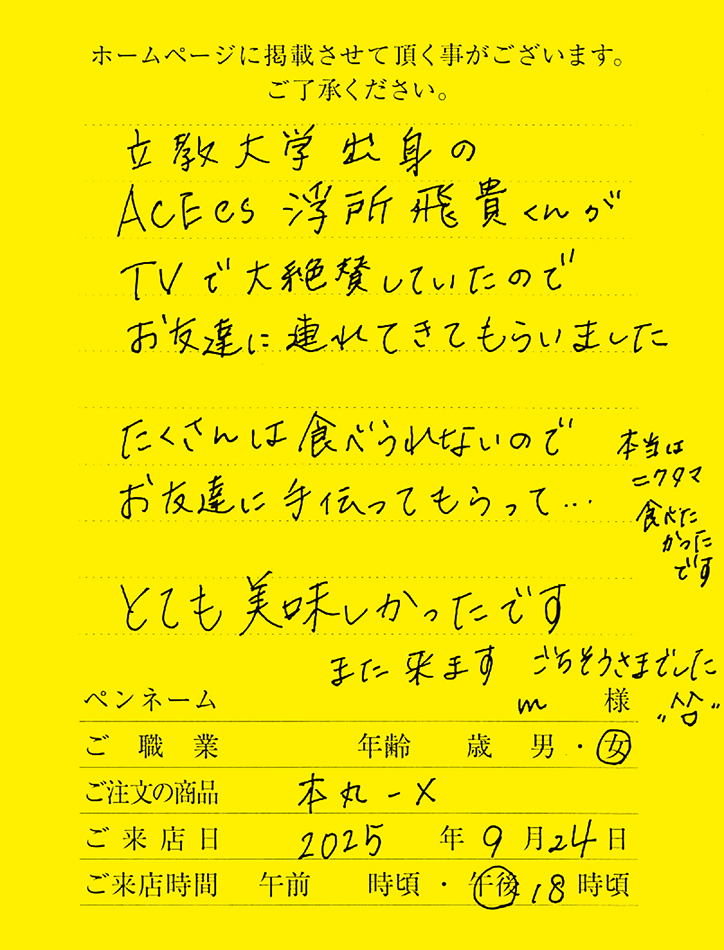 ホームページに掲載させて頂く事がございます。
ご了承ください。
立教大学出身の
ACEes 浮所飛貴くんが
TVで大絶賛していたので
お友達に連れてきてもらいました
たくさんは食べられないので
お友達に手伝ってもらって…
本当は
ニクタマ
食べた
かった
です
とても美味しかったです
また来ます ごちそうさまでした
ペンネーム m 様
ご職業 年齢 歳 男・女
ご注文の商品 本丸-X
ご来店日 2025年9月24日
ご来店時間 午前 時頃・午後 18時頃